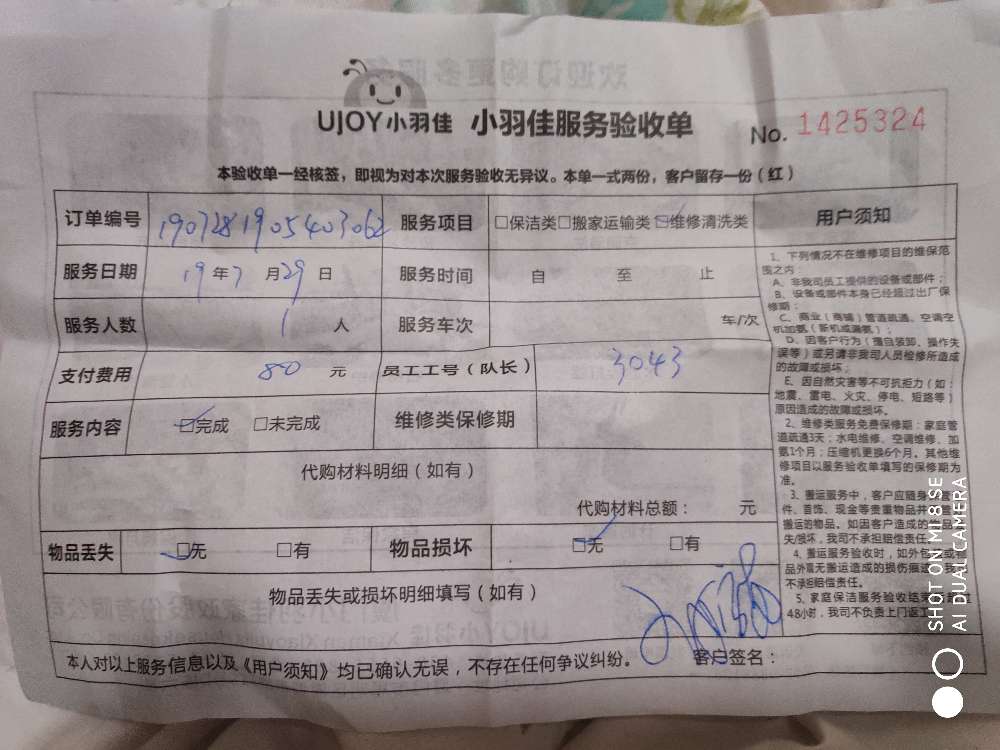 UJOY小羽佳 小羽佳服务验收单 No. 1425324
本验收单一经核签，即视为对本次服务验收无异议。本单一式两份，客户留存一份（红）
订单编号 1907281905403062 服务项目 □保洁类□搬家运输类□维修清洗类
服务日期 19 年 7 月 29 日 服务时间 自 至 止
服务人数 1 人 服务车次 车/次
支付费用 80 元 员工工号（队长） 3043
服务内容 □完成 □未完成 维修类保修期
代购材料明细（如有）
代购材料总额： 元
物品丢失 □无 □有 物品损坏 □无 □有
物品丢失或损坏明细填写（如有）
本人对以上服务信息以及《用户须知》均已确认无误，不存在任何争议纠纷。 客户签名：
用户须知
1、下列情况不在维修项目的维保范
围之内：
A、非我司员工提供的设备或部件；
B、设备或部件本身已经超过出厂保
修期；
C、商业（商铺）管道疏通、空调空
机加氨（新机或漏氨）；
D、因客户行为（擅自装卸、操作失
误等）或另请非我司人员检修所造成
的故障或损坏；
E、因自然灾害等不可抗拒力（如：
地震、雷电、火灾、停电、短路等）
原因造成的故障或损坏。
2、维修类服务免费保修期：家庭管
道疏通3天；水电维修、空调维修、加
氨1个月；压缩机更换6个月。其他维
修项目以服务验收单填写的保修期为
准。
3、搬运服务中，客户应随身
件、首饰、现金等贵重物品并
搬运的物品。如因客户造成的物品
失/损坏，我司不承担赔偿责任。
4、搬运服务验收时，如外包
品外露无搬运造成的损伤痕
不承担赔偿责任。
5、家庭保洁服务验收结
48小时，我司不负责上门返工
SHOT ON MI 8 SE
AI DUAL CAMERA